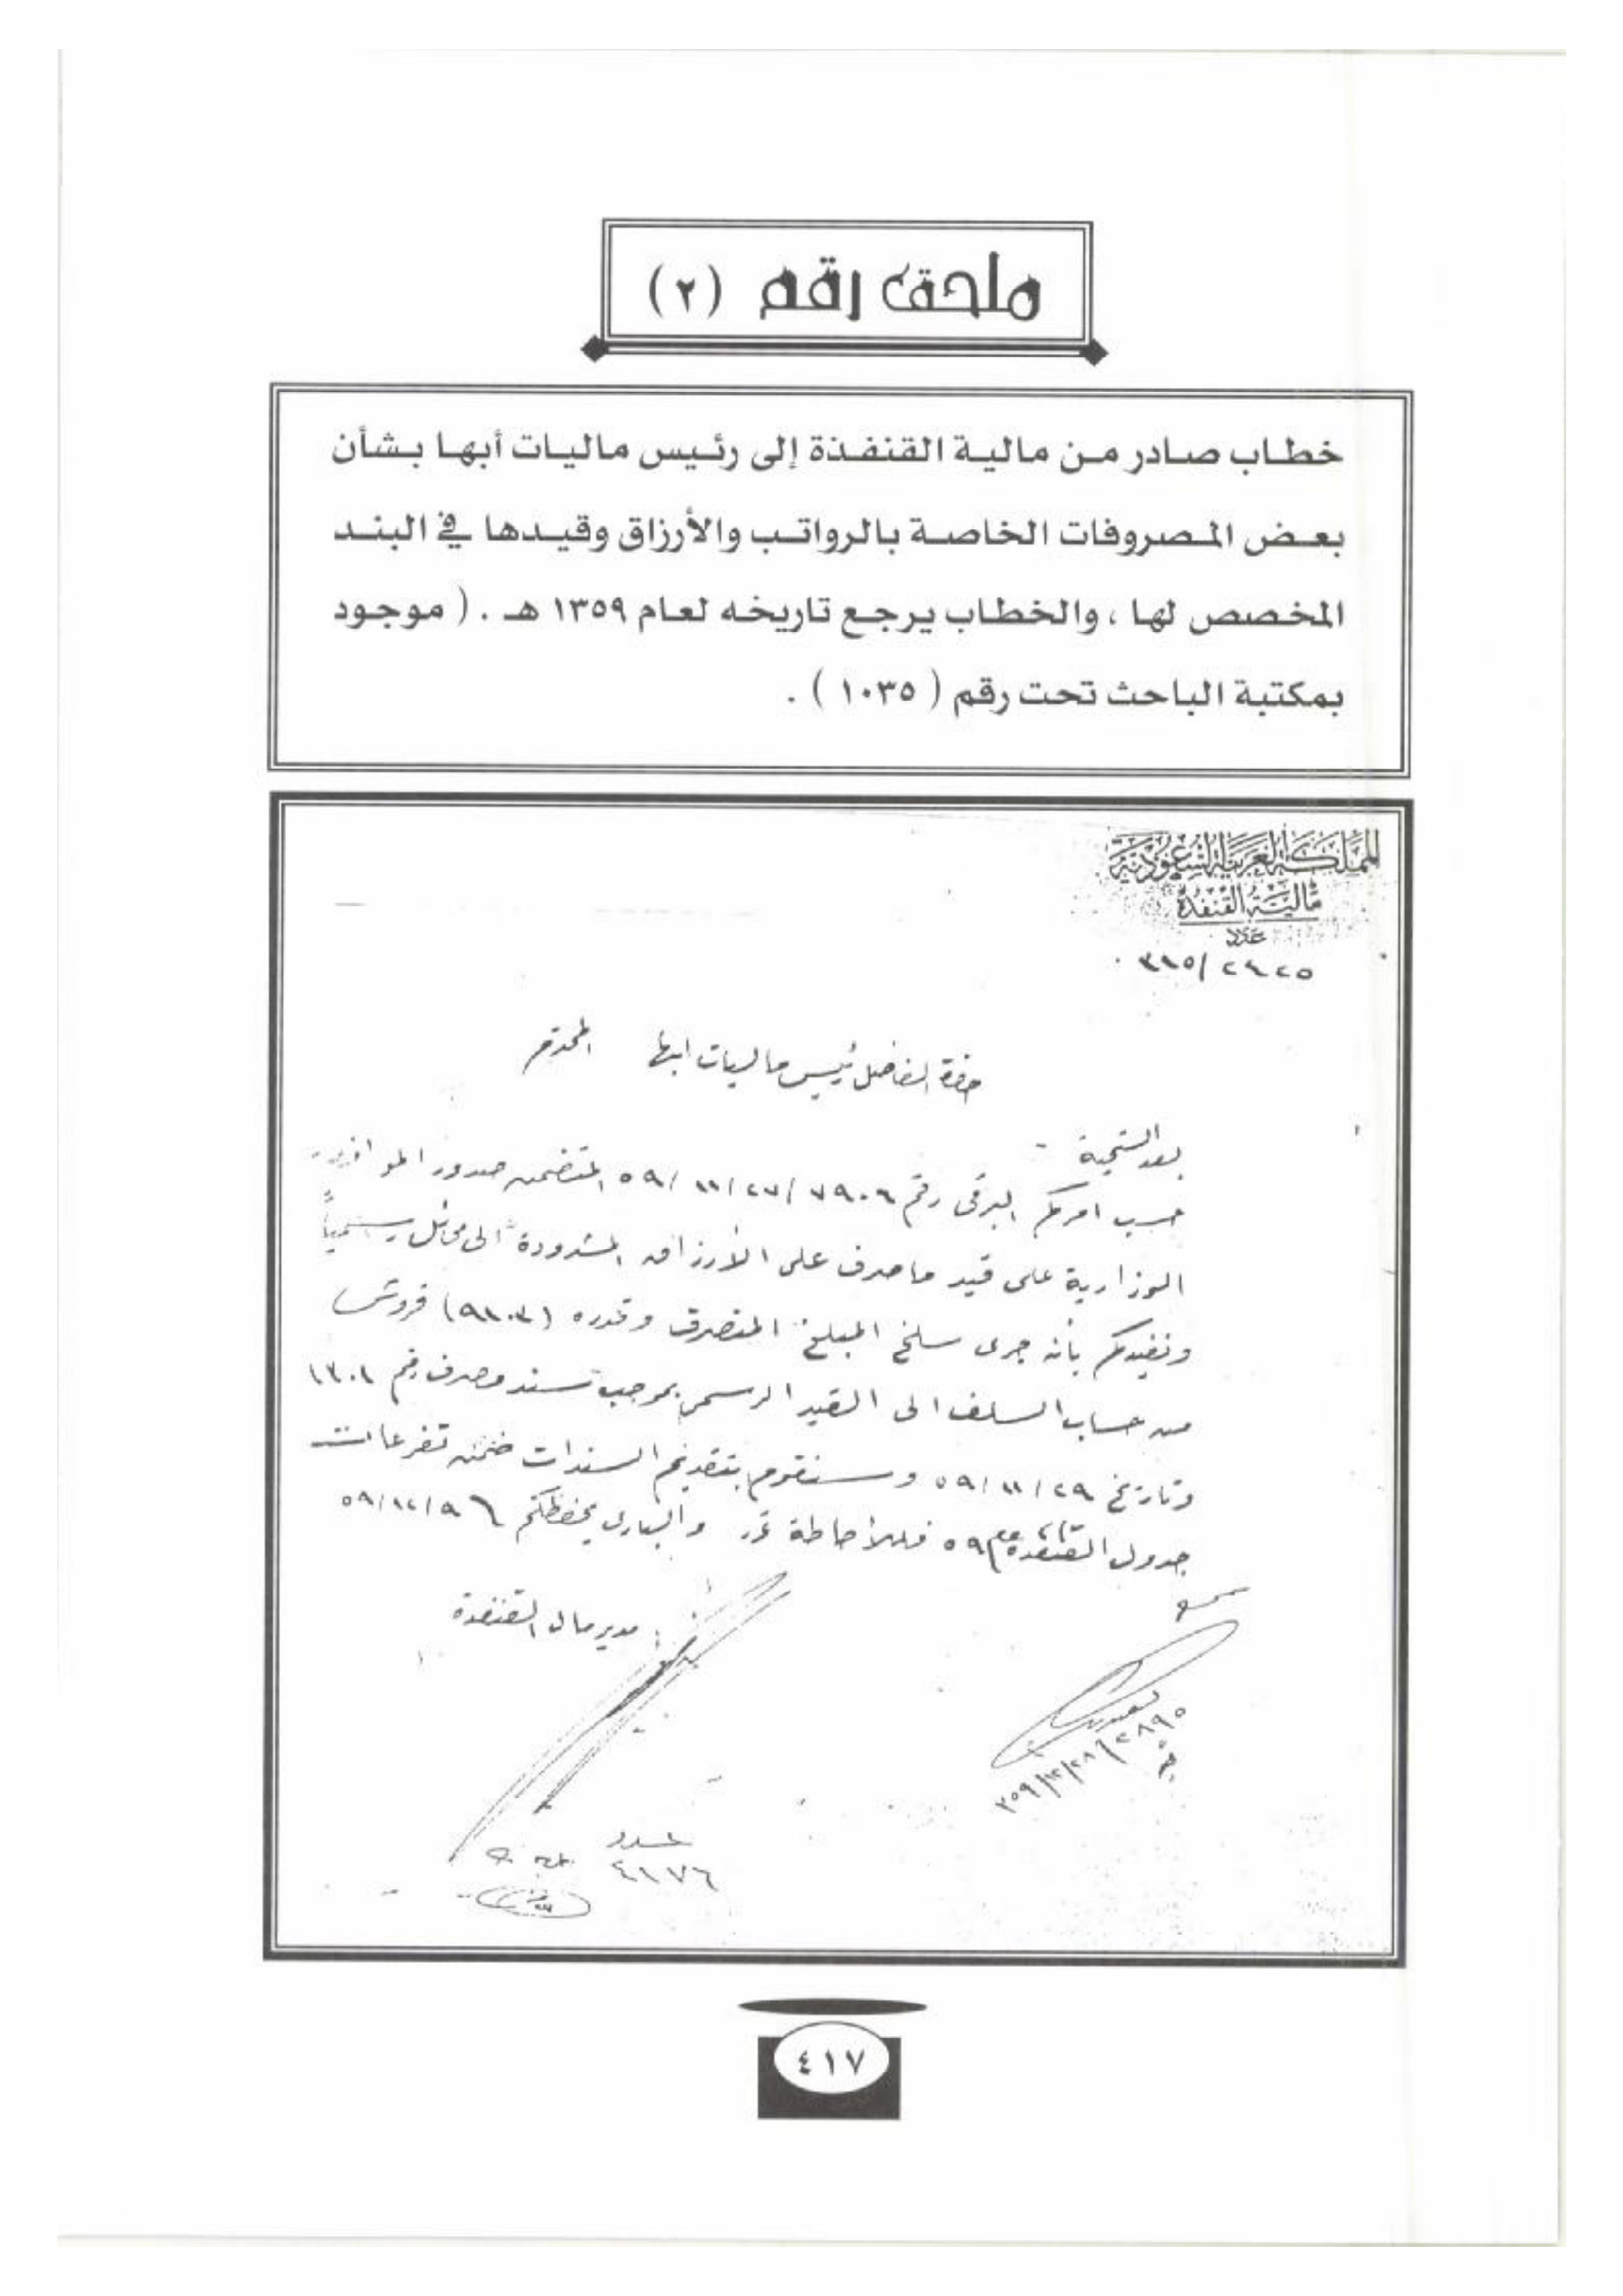 ملحق رقم (٢)
خطاب صادر من مالية القنفذة إلى رئيس ماليات أبها بشأن
بعض المصروفات الخاصة بالرواتب والأرزاق وقيدها في البند
المخصص لها ، والخطاب يرجع تاريخه لعام ١٣٥٩ هـ . ( موجود
بمكتبة الباحث تحت رقم ( ١٠٣٥ ) .
المملكة العربية السعودية
مالية القنفذة
عدد
حضرة الفاضل رئيس ماليات ابها المحترم
بعد التحية -
حسب امركم البرقى رقم ٧٩٠٦ / ٢٧ / ١١ / ٥٩ المتضمن صدور الموافقة
الوزارية على قيد ما صرف على الأرزاق المشدودة الى محائل رسمياً
ونفيدكم بأنه جرى سلخ المبلغ المتصرف وقدره ( ) قروش
من حساب السلف الى القيد الرسمي بموجب سند مصرف رقم
وتاريخ ٢٩ / ١١ / ٥٩ وسنقوم بتقديم السندات ضمن تفرعات
جدول القنفذة ٥٩ فللأحاطة والبارى يحفظكم
مدير مال القنفذة
عدد
٤١٧٦
٤١٧